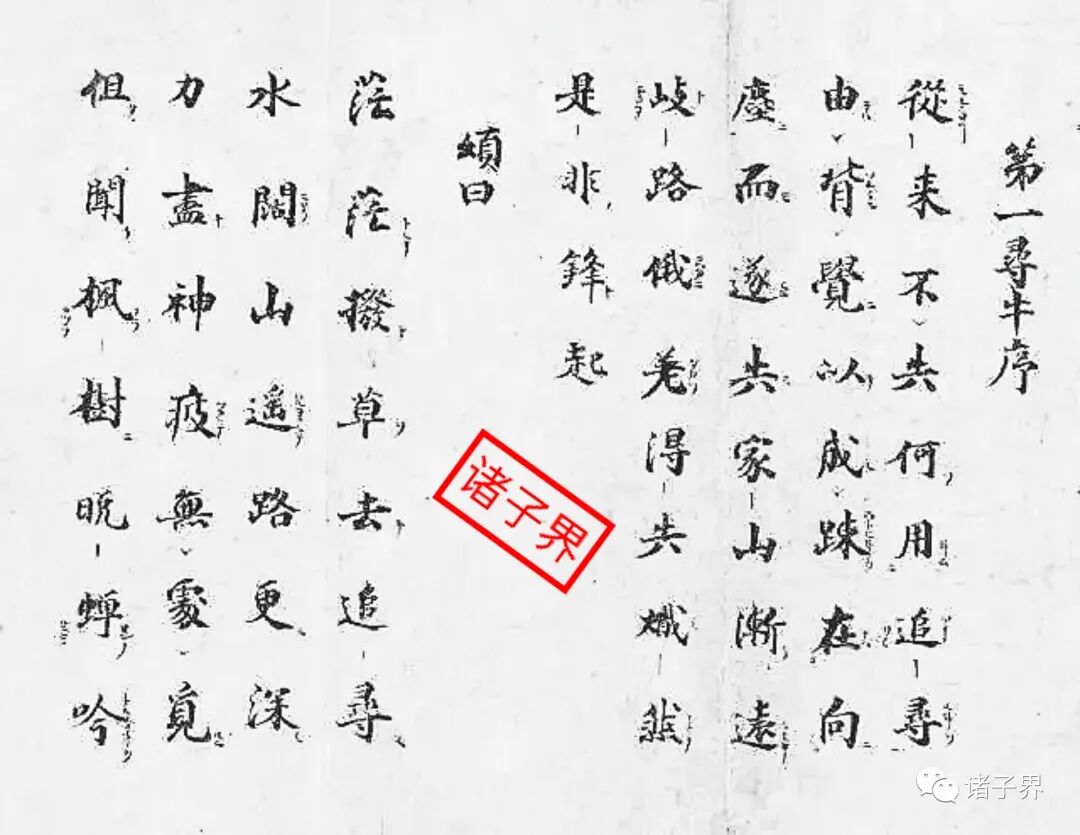 第一尋牛序
從来不失何用追尋
由背覺以成踈在向
塵而遂失家山漸遠
岐路俄差得失熾然
是非鋒起
頌曰
茫茫撥草去追尋
水闊山遥路更深
力盡神疲無處覓
但聞楓樹晚蝉吟
诸子界
诸子界